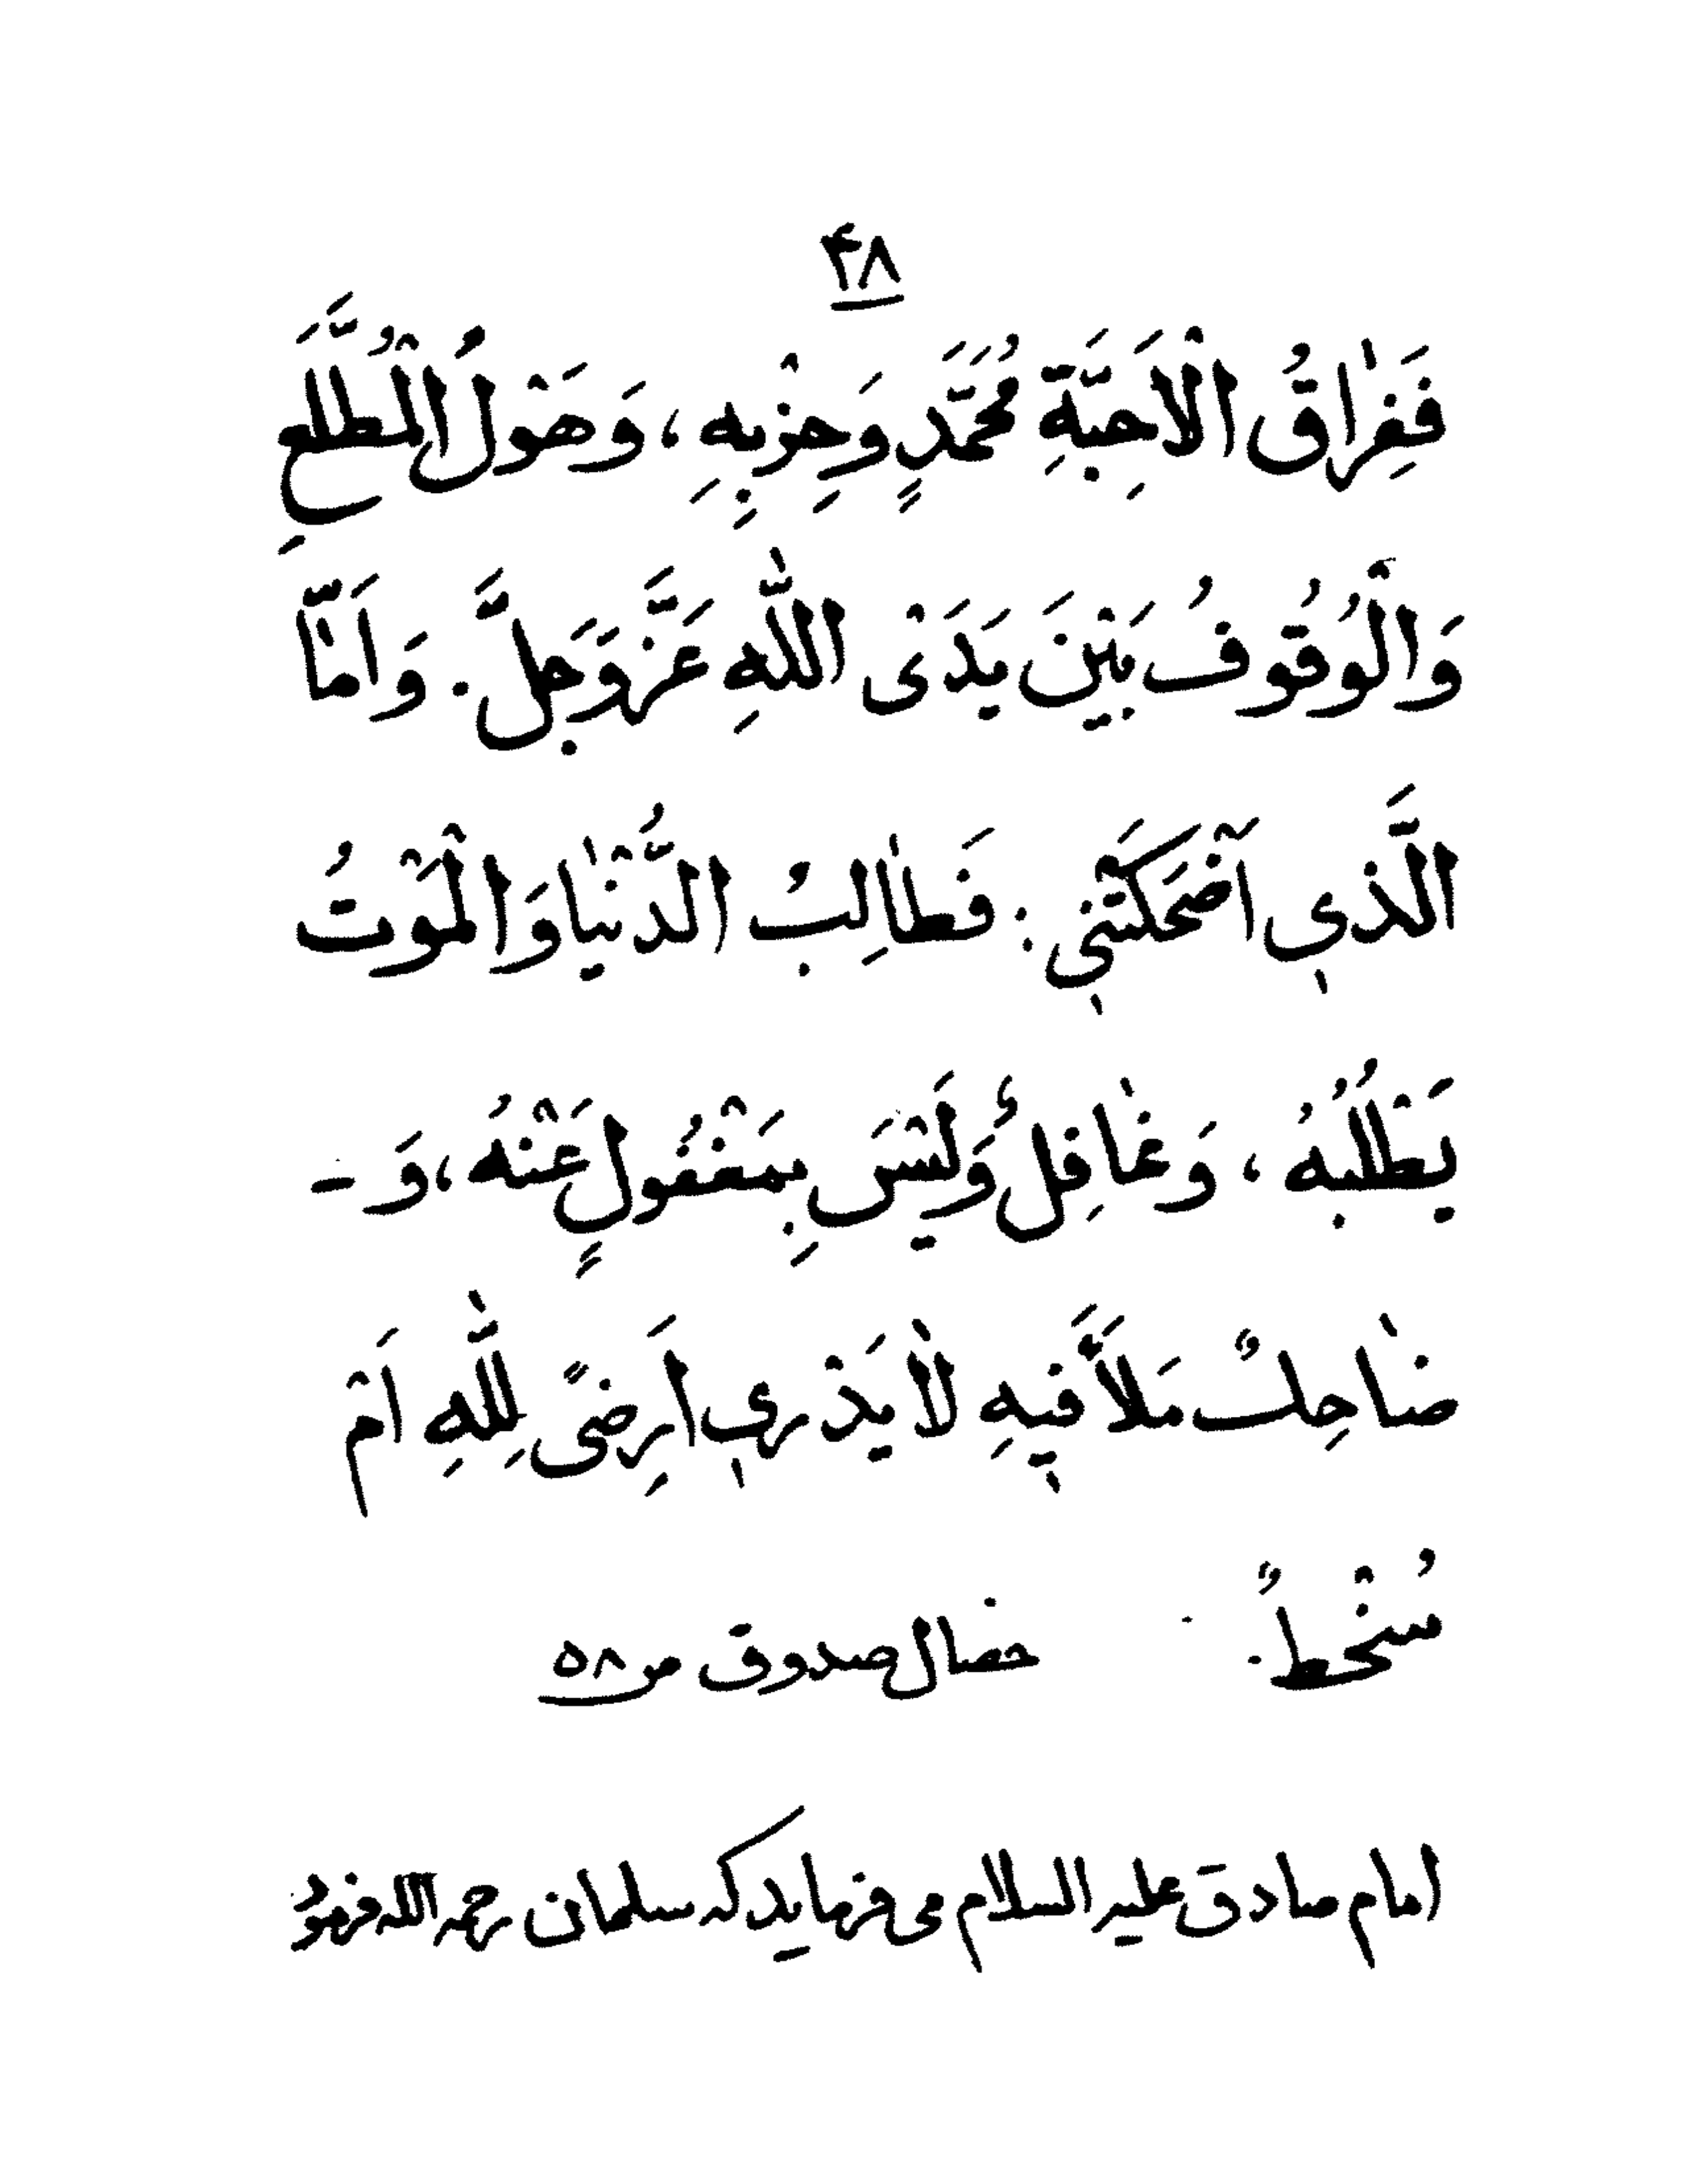 ۴۸
فَفِرٰاقُ الْاَحِبَّةِ مُحَمَّدٍ وَحِزْبِهِ، وَهَوْلُ الْمُطَّلَعِ
وَالْوُقُوفُ بَيْنَ يَدَىْ اللّٰهِ عَزَّوَجَلَّ. وَاَمّٰا
الَّذي اَضْحَكَتْني: فَطٰالِبُ الدُّنْيٰا وَالْمَوْتُ
يَطْلُبُهُ، وَغٰافِلٌ وَلَيْسَ بِمَغْفُولٍ عَنْهُ، وَ-
ضٰاحِكٌ مَلَأَ فيهِ لٰا يَدْري اَرِضىً لِلّٰهِ اَمْ
سُخْطاً. خصال صدوق ص ۵۸
امام صادق علیه السلام می فرماید که سلمان رحمه الله فرمود